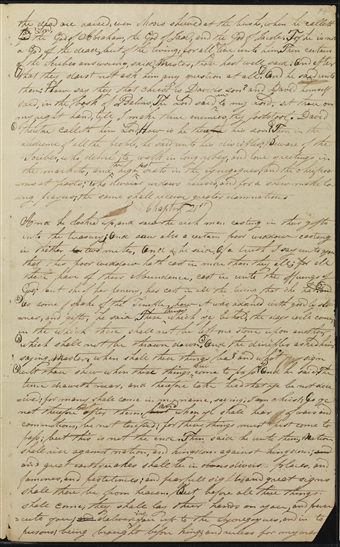 the dead are raised, even Moses shewed at the bush, when he calleth
the God of Abraham, the God of Isaac, and the God of Jacob; For he is not
a God of the dead, but of the living, for all live unto him; Then certain
of the Scribes answering, said, Master, thou hast well said; And after
that they durst not ask him any question at all; And he said unto
them, how say they that Christ is David's son? and David himself
said, in the book of Psalms, The Lord said to my lord, sit thou on
my right hand, till I make thine enemies thy footstool. David
therefore calleth him Lord, How is he then his son? Then in the
audience of all the people, he said unto his disciples, Beware of the
Scribes, who desire to walk in long robes, and love greetings in
the markets, and the highest seats in the synagogues, and the chief rooms
at feasts; who devour widows houses, and for a shew make long
prayers; the same shall receive greater damnation;
Chapter 21st
And he looked up, and saw the rich men casting in their gifts
into the treasury; And saw also a certain poor widow casting
in thither two mites; And he said, Of a truth I say unto you
that this poor widow hath cast in more than they all; for all
these have of their abundance, cast in unto the offerings of
God; but she of her penury, hath cast in all the living that she had; And
as some spake of the Temple, how it was adorned with goodly stones
and gifts, he said, These things which ye behold, the days will come,
in the which there shall not be left one stone upon another,
which shall not be thrown down; And the disciples asked him,
saying, Master, when shall these things be? and what sign
wilt thou shew when these things come to pass? And he said, The
time draweth near, and therefore take heed that ye be not deceived;
for many shall come in my name, saying, I am Christ; Go ye
not therefore after them; and when ye shall hear of wars and
commotions, be not terrified; for these things must first come to
pass; but this is not the end; Then said he unto them, Nation
shall rise against nation, and kingdom against kingdom;
and great earthquakes shall be in divers places, and
famines, and pestilences; and fearful sights, and great signs
shall there be from heaven; But before all these things
shall come, they shall lay their hands on you, and persecute
you; delivering you up to the Synagogues, and into
prisons; being brought before kings and rulers for my name's